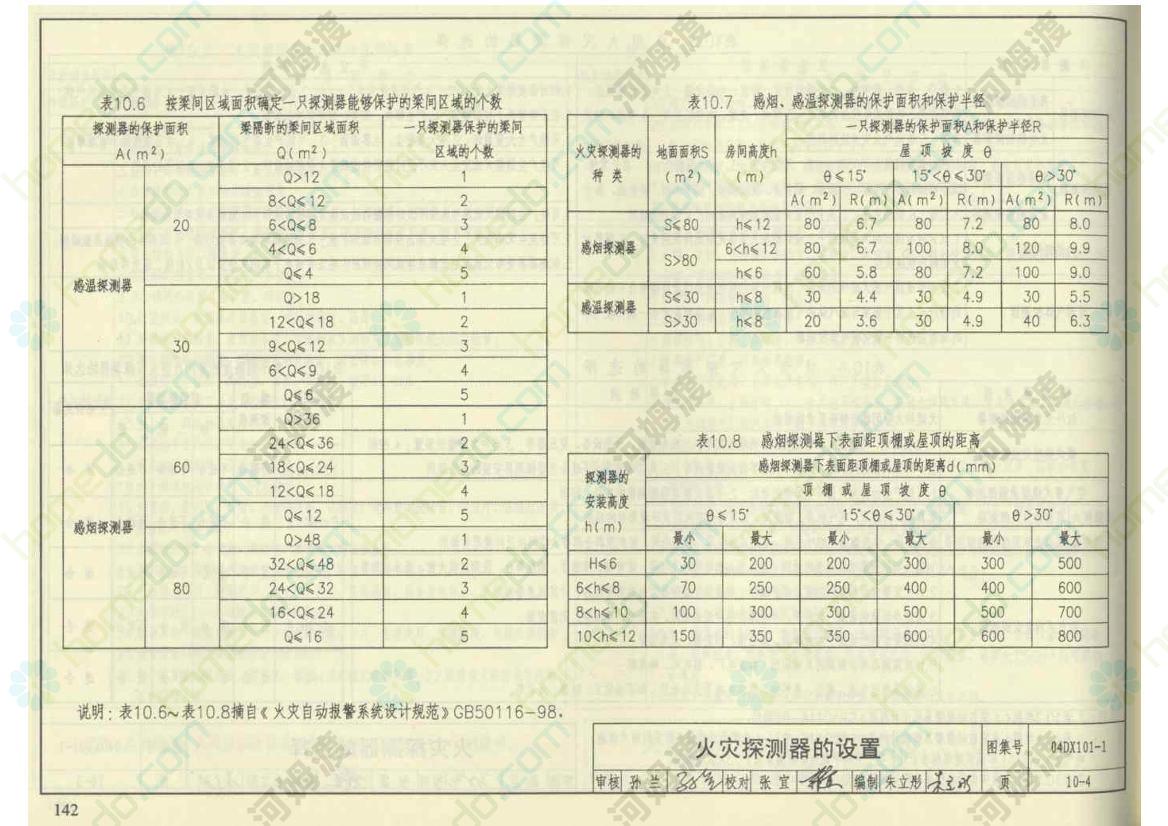 表10.6 按梁间区域面积确定一只探测器能够保护的梁间区域的个数
探测器的保护面积 A(m²) 梁隔断的梁间区域面积 Q(m²) 一只探测器保护的梁间区域的个数
感温探测器 20 Q>12 1
8<Q≤12 2
6<Q≤8 3
4<Q≤6 4
Q≤4 5
30 Q>18 1
12<Q≤18 2
9<Q≤12 3
6<Q≤9 4
Q≤6 5
感烟探测器 60 Q>36 1
24<Q≤36 2
18<Q≤24 3
12<Q≤18 4
Q≤12 5
80 Q>48 1
32<Q≤48 2
24<Q≤32 3
16<Q≤24 4
Q≤16 5
表10.7 感烟、感温探测器的保护面积和保护半径
火灾探测器的种类 地面面积S (m²) 房间高度h (m) 一只探测器的保护面积A和保护半径R
屋顶坡度θ
θ≤15° 15°<θ≤30° θ>30°
A(m²) R(m) A(m²) R(m) A(m²) R(m)
感烟探测器 S≤80 h≤12 80 6.7 80 7.2 80 8.0
S>80 6<h≤12 80 6.7 100 8.0 120 9.9
h≤6 60 5.8 80 7.2 100 9.0
感温探测器 S≤30 h≤8 30 4.4 30 4.9 30 5.5
S>30 h≤8 20 3.6 30 4.9 40 6.3
表10.8 感烟探测器下表面距顶棚或屋顶的距离
探测器的安装高度 h(m) 感烟探测器下表面距顶棚或屋顶的距离d(mm)
顶棚或屋顶坡度θ
θ≤15° 15°<θ≤30° θ>30°
最小 最大 最小 最大 最小 最大
H≤6 30 200 200 300 300 500
6<h≤8 70 250 250 400 400 600
8<h≤10 100 300 300 500 500 700
10<h≤12 150 350 350 600 600 800
说明：表10.6～表10.8摘自《火灾自动报警系统设计规范》GB50116-98。
火灾探测器的设置 图集号 04DX101-1
审核 孙兰 校对 张宜 编制 朱立彤 朱立彤 页 10-4
142
河姆渡
homedo.com